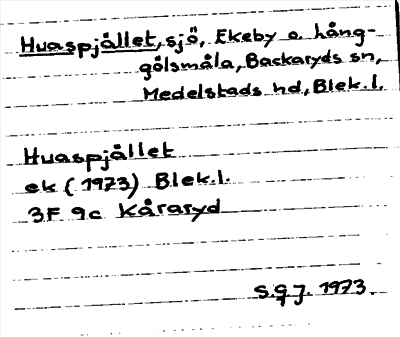 Huaspjållet, sjö, Ekeby o. hång-
gölsmåla, Backaryds sn,
Medelstads hd, Blek.l.
Huaspjållet
ek (1973) Blek.l.
3F 9c Kåraryd
S.G.J. 1973.